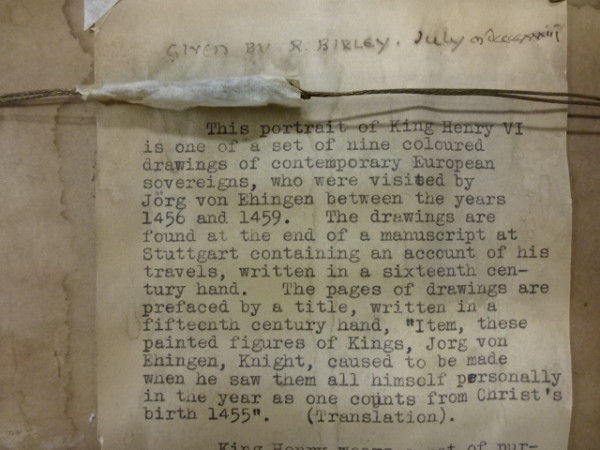 GIVEN BY R. BIRLEY. July
This portrait of King Henry VI
is one of a set of nine coloured
drawings of contemporary European
sovereigns, who were visited by
Jörg von Ehingen between the years
1456 and 1459. The drawings are
found at the end of a manuscript at
Stuttgart containing an account of his
travels, written in a sixteenth cen-
tury hand. The pages of drawings are
prefaced by a title, written in a
fifteenth century hand, "Item, these
painted figures of Kings, Jorg von
Ehingen, Knight, caused to be made
when he saw them all himself personally
in the year as one counts from Christ's
birth 1455". (Translation).
King Henry wears a set of pur-